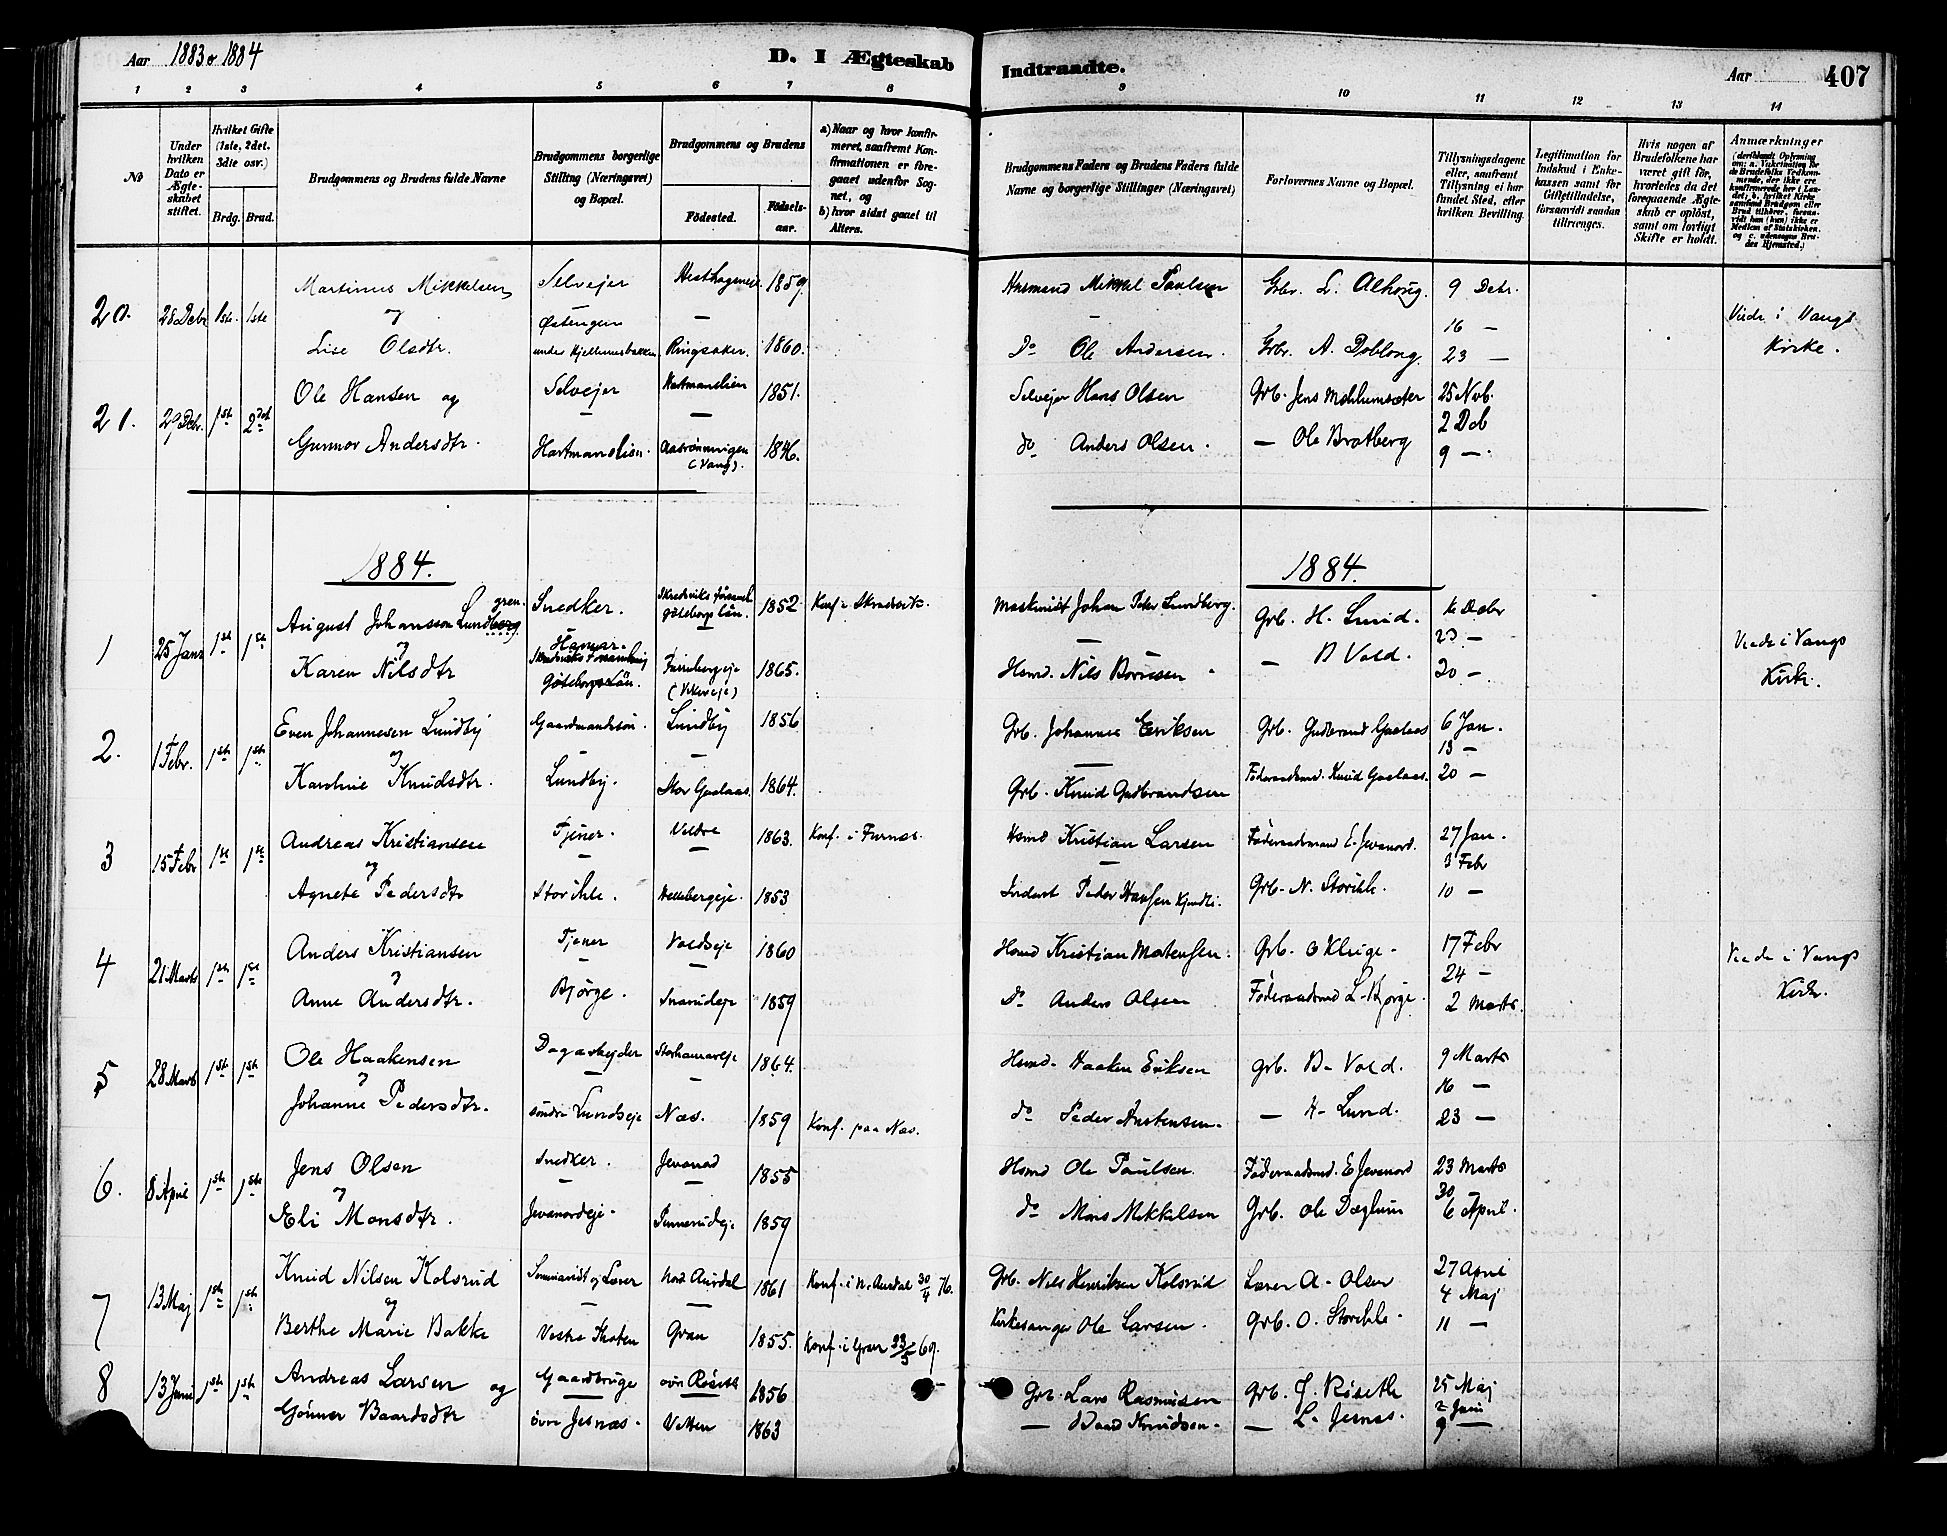 Aar 1883 o 1884
D. I Ægteskab
Indtraadte.
Aar 407
1 2 3 4 5 6 7 8 9 10 11 12 13 14
No
Under hvilken Dato er Ægteskabet stiftet.
Hvilket Gifte (1ste, 2det. 3die osv.)
Brdg. Brud.
Brudgommens og Brudens fulde Navne
Brudgommens borgerlige Stilling (Næringsvei) og Bopæl.
Brudgommens og Brudens
Födested.
Födselsaar.
a) Naar og hvor konfirmeret, saafremt Konfirmationen er foregaaet udenfor Sognet, og
b) hvor sidst gaaet til Alters.
Brudgommens Faders og Brudens Faders fulde Navne og borgerlige Stillinger (Næringsvei)
Forlovernes Navne og Bopæl.
Tillysningsdagene eller, saafremt Tillysning ei har fundet Sted, efter hvilken Bevilling.
Legitimation for Indskud i Enkekassen samt for Giftetilladelse, forsaavidt saadan tiltrænges.
Hvis nogen af Brudefolkene har været gift før, hvorledes da det foregaaende Ægteskab er opløst, samt om lovligt Skifte er holdt.
Anmærkninger
20. 28 Debr 1ste. 1ste
Martinus Mikkelsen
og
Lise Olsdtr.
Selvejer
Østengen
under Kjellerudsbakken
Ringsaker.
1859.
1860.
Husmand Mikkel Paulsen
Do Ole Andersen.
Grbr. L. Alhoug.
Grbr. A. Doblong.
9 Debr.
16 —
23 —
Viede i Vangs
Kirke.
21. 29 Debr. 1ste 2det
Ole Hansen og
Gunnor Andersdtr.
Selvejer
—
Hartmanslien.
Hartmanslien
—
(Vang).
1851.
1846.
Selvejer Hans Olsen
do Anders Olsen.
Grb. Jens Mehlumsæter
— Ole Bratberg
25 Novb.
2 Deb
9 —.
1884.
1884.
1 25 Janr 1ste 1ste
August Johansson Lundgren
og
Karen Nilsdtr
Snedker.
Hamar.
Göteborgs Län.
Skredsviks församl.
göteborgs län.
(Virkeeje)
1852.
1865.
Konf. i Skredsvik.
Maskinist Johan Peter Lundberg.
—
Husmd. Nils Børresen
Grb. H. Lund.
— B Vold.
16 Debr
23 —
30 —
Viede i Vangs
Kirke.
2. 1 Febr. 1ste 1ste
Even Johannesen Lundby
og
Karoline Knudsdtr.
Gaardmandssøn.
Lundby.
Lundby
—
Stor Gaalaas.
1856
1864.
Grb. Johannes Eriksen
—
Grb. Knud Gudbrandsen
Grb. Gudbrand Gaalaas
Føderaadsmd. Knud Gaalaas.
6 Jan.
13 —
20 —
3 15 Febr 1ste 1ste
Andreas Kristiansen
og
Agnete Pedersdtr
Tjener.
—
Storihle.
Veldre
—
Hellebergeje.
1863.
1853
Konf. i Furnæs.
Husmd Kristian Larsen
—
Inderst Peder Hansen Kjendli.
Føderaadsmand E. Jevanord.
Grb. N. Storihle.
27 Jan.
3 Febr
10 —
4 21 Marts 1ste 1ste
Anders Kristiansen
og
Anne Andersdtr.
Tjener
Bjørge.
Voldseje
—
Snarudeje
1860
1859
Husmd Kristian Matensen.
Do Anders Olsen
Grb. O Kluge.
Føderaadsmd L. Bjørge.
17 Febr
24 —
2 Marts
Viede i Vangs
Kirke.
5 28 Marts 1ste 1ste
Ole Haakensen
og
Johanne Pedersdtr.
Dagarbejder
—
søndre Lundseje
Storhamareje
—
Næs.
1864.
1859
Konf. paa Næs.
Husmd. Haaken Eriksen
do Peder Austensen.
Grb. B. Vold.
— H. Lund.
9 Marts
16 —
23 —
6. 8 April 1ste 1ste
Jens Olsen
og
Eli Monsdtr.
Snedker.
—
Jevanordeje.
Jevanord
—
Pinnerudeje
1855
1859
Husmd Ole Paulsen
do Mons Mikkelsen
Føderaadsmd. E Jevanord
Grb. Ole Dæhlum
23 Marts
30 —
6 April.
7 13 Maj 1ste 1ste
Knud Nilsen Kolsrud
og
Berthe Marie Bakke
Seminarist og Lærer
—
Vestre Thoten
Nord Aurdal
—
Gran
1861
1855.
Konf. i N. Aurdal 30/4 76.
Konf. i Gran 23/5 69.
Grb. Nils Henriksen Kolsrud
Kirkesanger Ole Larsen.
Lærer A. Olsen
Grb. O. Storihle.
27 April
4 Maj
11 —
8 13 Juni 1ste 1ste
Andreas Larsen og
Gönner Baardsdtr
Gaardbruge
—
øvre Jesnæs.
øvre Röseth
—
Vetten
1856
1863
Grb. Lars Rasmusen
— Baard Knudsen.
Grb. J. Röseth
— L. Jesnæs.
25 Maj
2 Juni
9 —